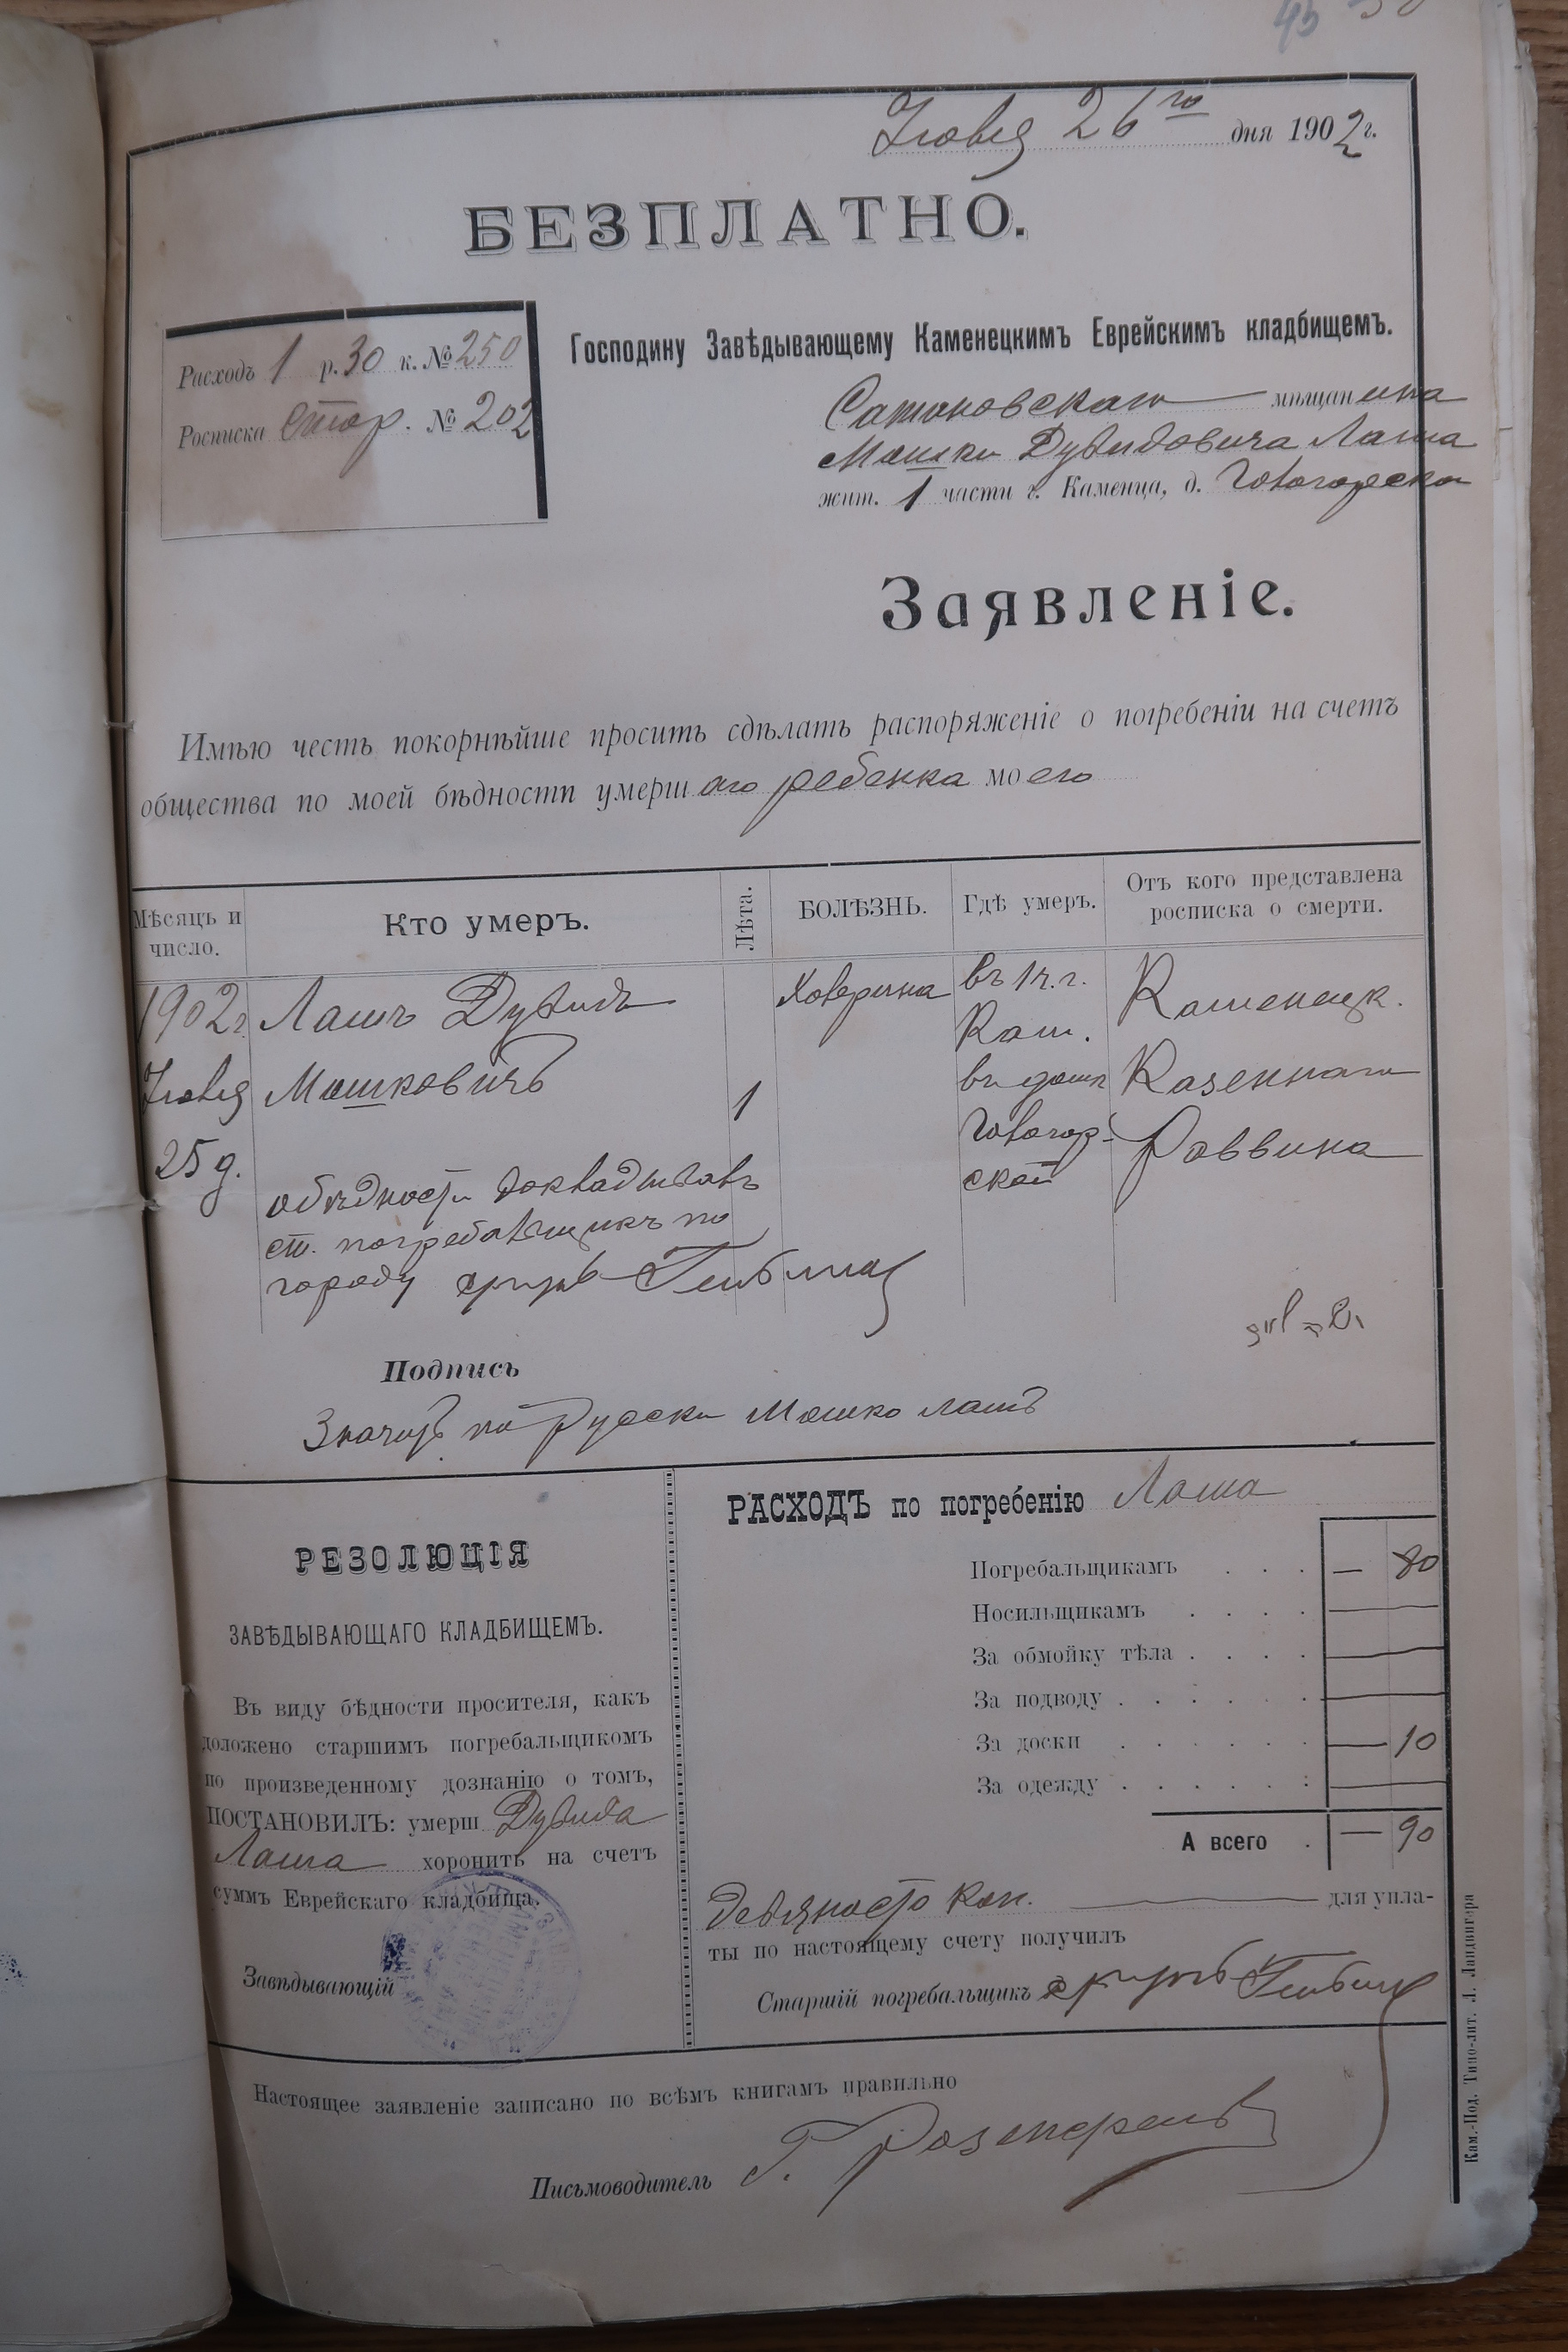 45
Іюля 26го дня 1902 г.
БЕЗПЛАТНО.
Расходъ 1 р. 30 к. № 250
Росписка стор. № 202
Господину Завѣдывающему Каменецкимъ Еврейскимъ кладбищемъ.
Сатановскаго мѣщанина
Мошки Дувидовича Лаша
жит. 1 части г. Каменца, д.
Заявленіе.
Имѣю честь покорнѣйше просить сдѣлать распоряженіе о погребеніи на счетъ
общества по моей бѣдности умершаго ребенка моего
Мѣсяцъ и число.
Кто умеръ.
Лѣта.
БОЛѢЗНЬ.
Гдѣ умеръ.
Отъ кого представлена росписка о смерти.
1902 г. Іюля 25 д.
Лашъ Дувидъ Мошковичъ
1
въ 1 ч. г. Кам. въ домѣ
Каменецк. Казеннаго Раввина
о бѣдности докладывавъ
ст. погребальщикъ по
городу
Подпись
Значитъ по Русски Мошко Лашъ
РЕЗОЛЮЦІЯ
ЗАВѢДЫВАЮЩАГО КЛАДБИЩЕМЪ.
Въ виду бѣдности просителя, какъ
доложено старшимъ погребальщикомъ
по произведенному дознанію о томъ,
ПОСТАНОВИЛЪ: умерш Дувида
Лаша хоронить на счетъ
суммъ Еврейскаго кладбища.
Завѣдывающій
РАСХОДЪ по погребенію Лаша
Погребальщикамъ . . . — 80
Носильщикамъ . . . . —
За обмойку тѣла . . . . —
За подводу . . . . . . —
За доски . . . . . . — 10
За одежду . . . . . : —
А всего . — 90
Девяносто коп. для упла-
ты по настоящему счету получилъ
Старшій погребальщикъ
Настоящее заявленіе записано по всѣмъ книгамъ правильно
Письмоводитель Г.
Кам.-Под. Типо-лит. Л. Ландвигера